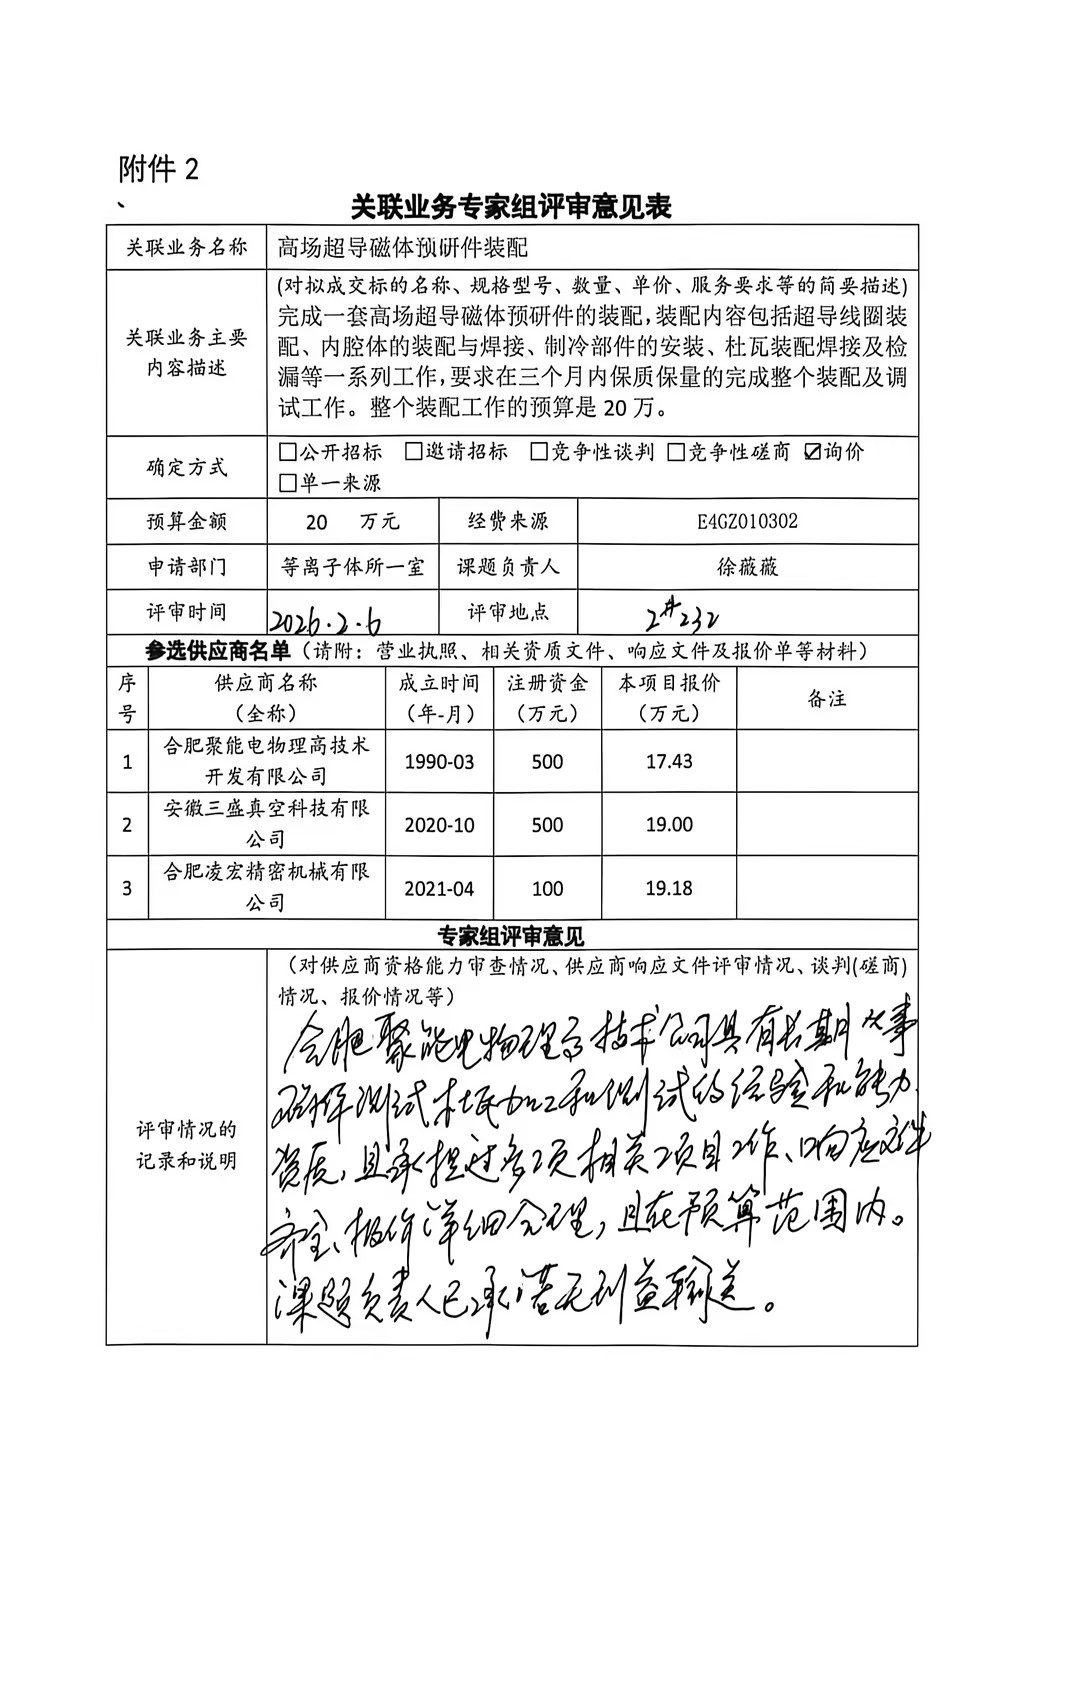 附件 2
关联业务专家组评审意见表
关联业务名称 高场超导磁体预研件装配
关联业务主要内容描述
(对拟成交标的名称、规格型号、数量、单价、服务要求等的简要描述)
完成一套高场超导磁体预研件的装配,装配内容包括超导线圈装
配、内腔体的装配与焊接、制冷部件的安装、杜瓦装配焊接及检
漏等一系列工作,要求在三个月内保质保量的完成整个装配及调
试工作。整个装配工作的预算是 20 万。
确定方式 □公开招标 □邀请招标 □竞争性谈判 □竞争性磋商 ☑询价
□单一来源
预算金额 20 万元 经费来源 E4GZ010302
申请部门 等离子体所一室 课题负责人 徐薇薇
评审时间 2026.2.6 评审地点 2#232
参选供应商名单（请附：营业执照、相关资质文件、响应文件及报价单等材料）
序号 供应商名称（全称） 成立时间（年-月） 注册资金（万元） 本项目报价（万元） 备注
1 合肥聚能电物理高技术开发有限公司 1990-03 500 17.43
2 安徽三盛真空科技有限公司 2020-10 500 19.00
3 合肥凌宏精密机械有限公司 2021-04 100 19.18
专家组评审意见
评审情况的记录和说明
（对供应商资格能力审查情况、供应商响应文件评审情况、谈判(磋商)
情况、报价情况等）
合肥聚能电物理高技术公司具有长期从事
磁体测试杜瓦加工和测试的经验和能力、
资质，且承担过多项相关项目工作、响应文件
齐全、报价详细合理，且在预算范围内。
课题负责人已承诺无利益输送。